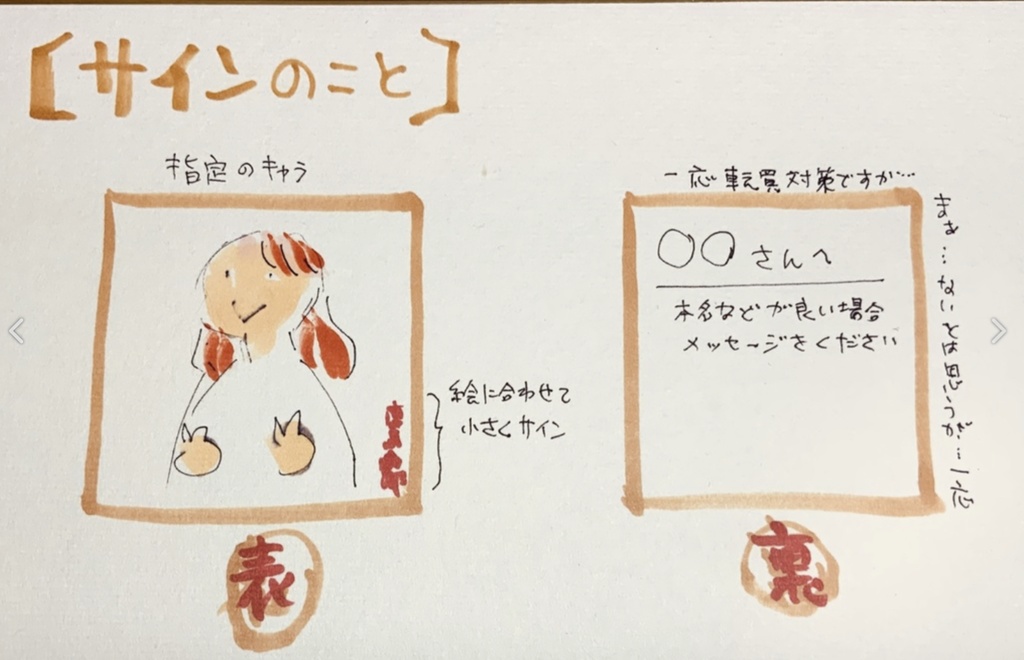 [サインのこと]
指定のキャラ
絵に合わせて
小さくサイン
表
一応転買対策ですが…
〇〇さんへ
本名などが良い場合
メッセージをください
まぁ…ないとは思うが…一応
裏